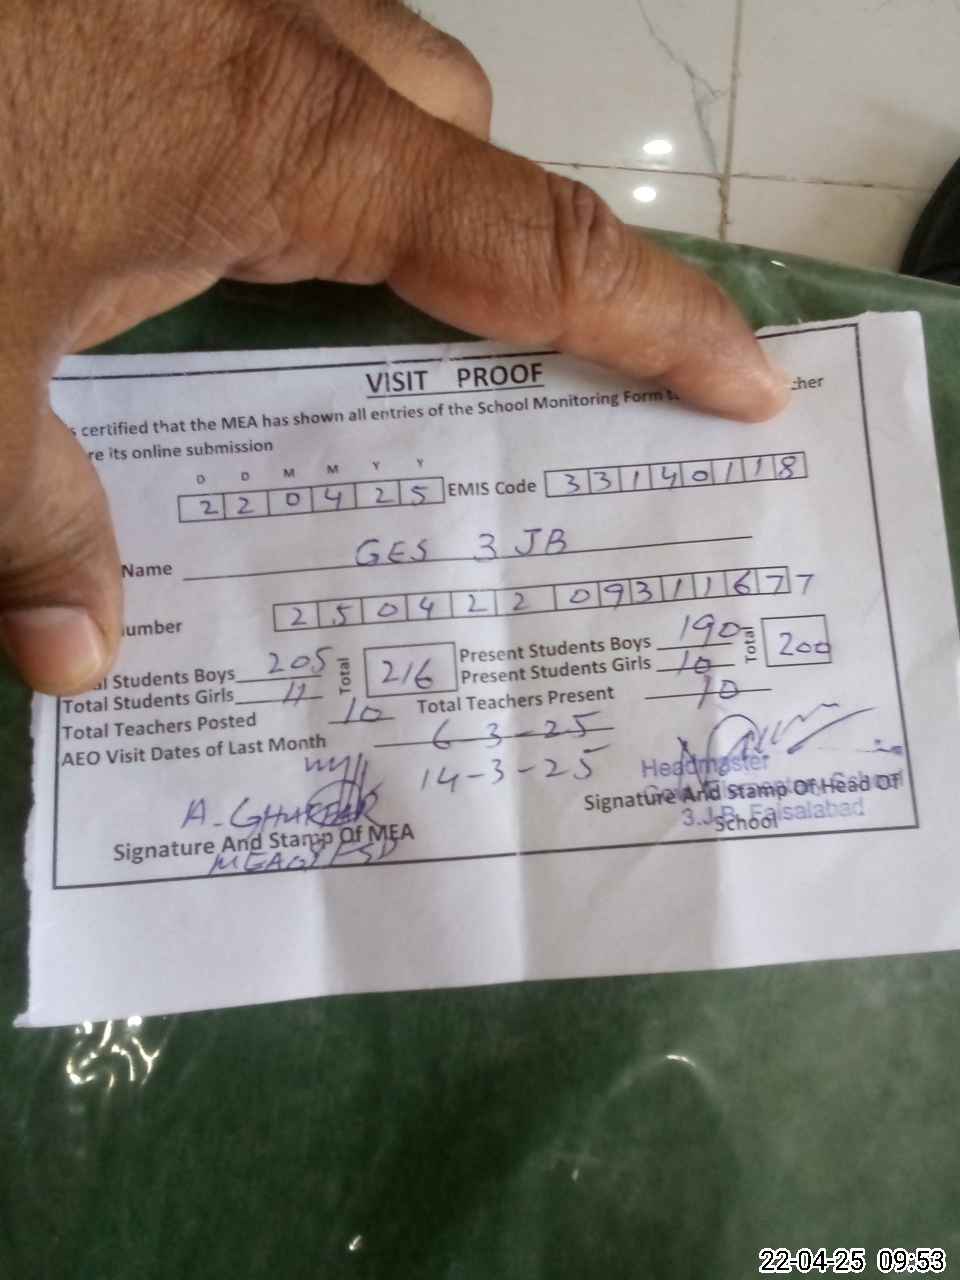 VISIT PROOF
s certified that the MEA has shown all entries of the School Monitoring Form t cher
re its online submission
D D M M Y Y
220425 EMIS Code 33140118
Name GES 3 JB
umber 2504220931167 7
al Students Boys 205 Total 216 Present Students Boys 190 Total 200
Total Students Girls 11 Present Students Girls 10
Total Teachers Posted 10 Total Teachers Present 10
AEO Visit Dates of Last Month 6-3-25
14-3-25
Headmaster
School
3.J.B. Faisalabad
Signature And Stamp Of Head Of
School
A.
Signature And Stamp Of MEA
22-04-25 09:53